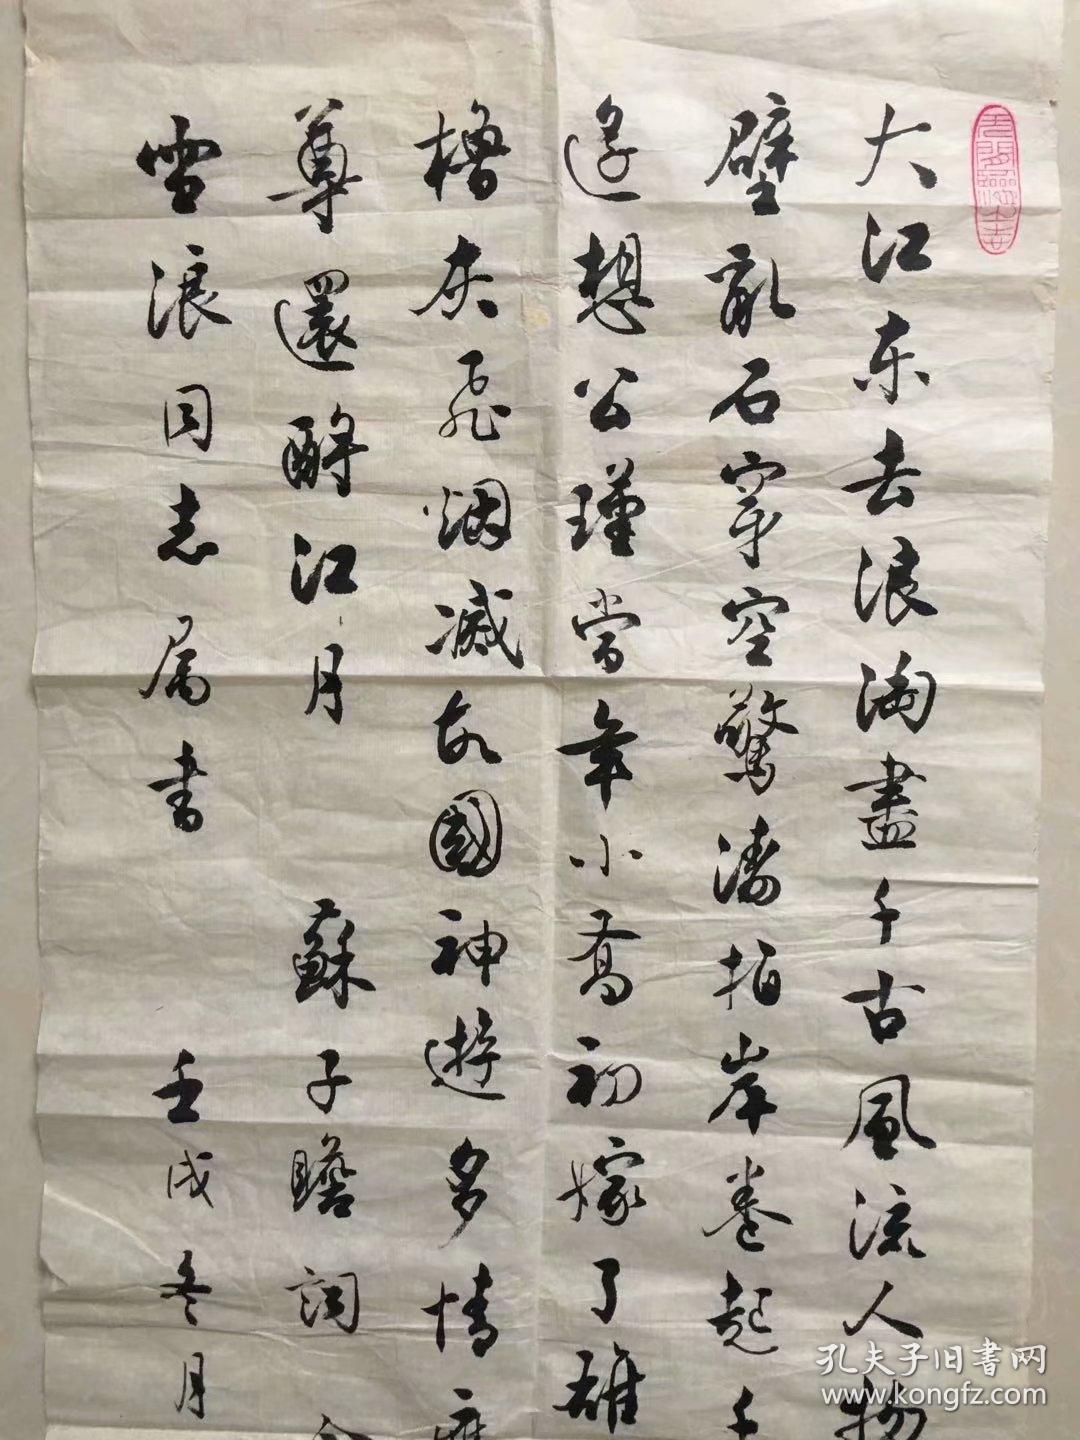 大江东去浪淘盡千古風流人物
壁亂石穿空驚濤拍岸卷起千
遥想公瑾當年小喬初嫁了雄
櫓灰飛烟滅故國神遊多情應
尊還酹江月 蘇子瞻詞
雪浪同志属書 壬戌冬月
孔夫子旧书网
www.kongfz.com